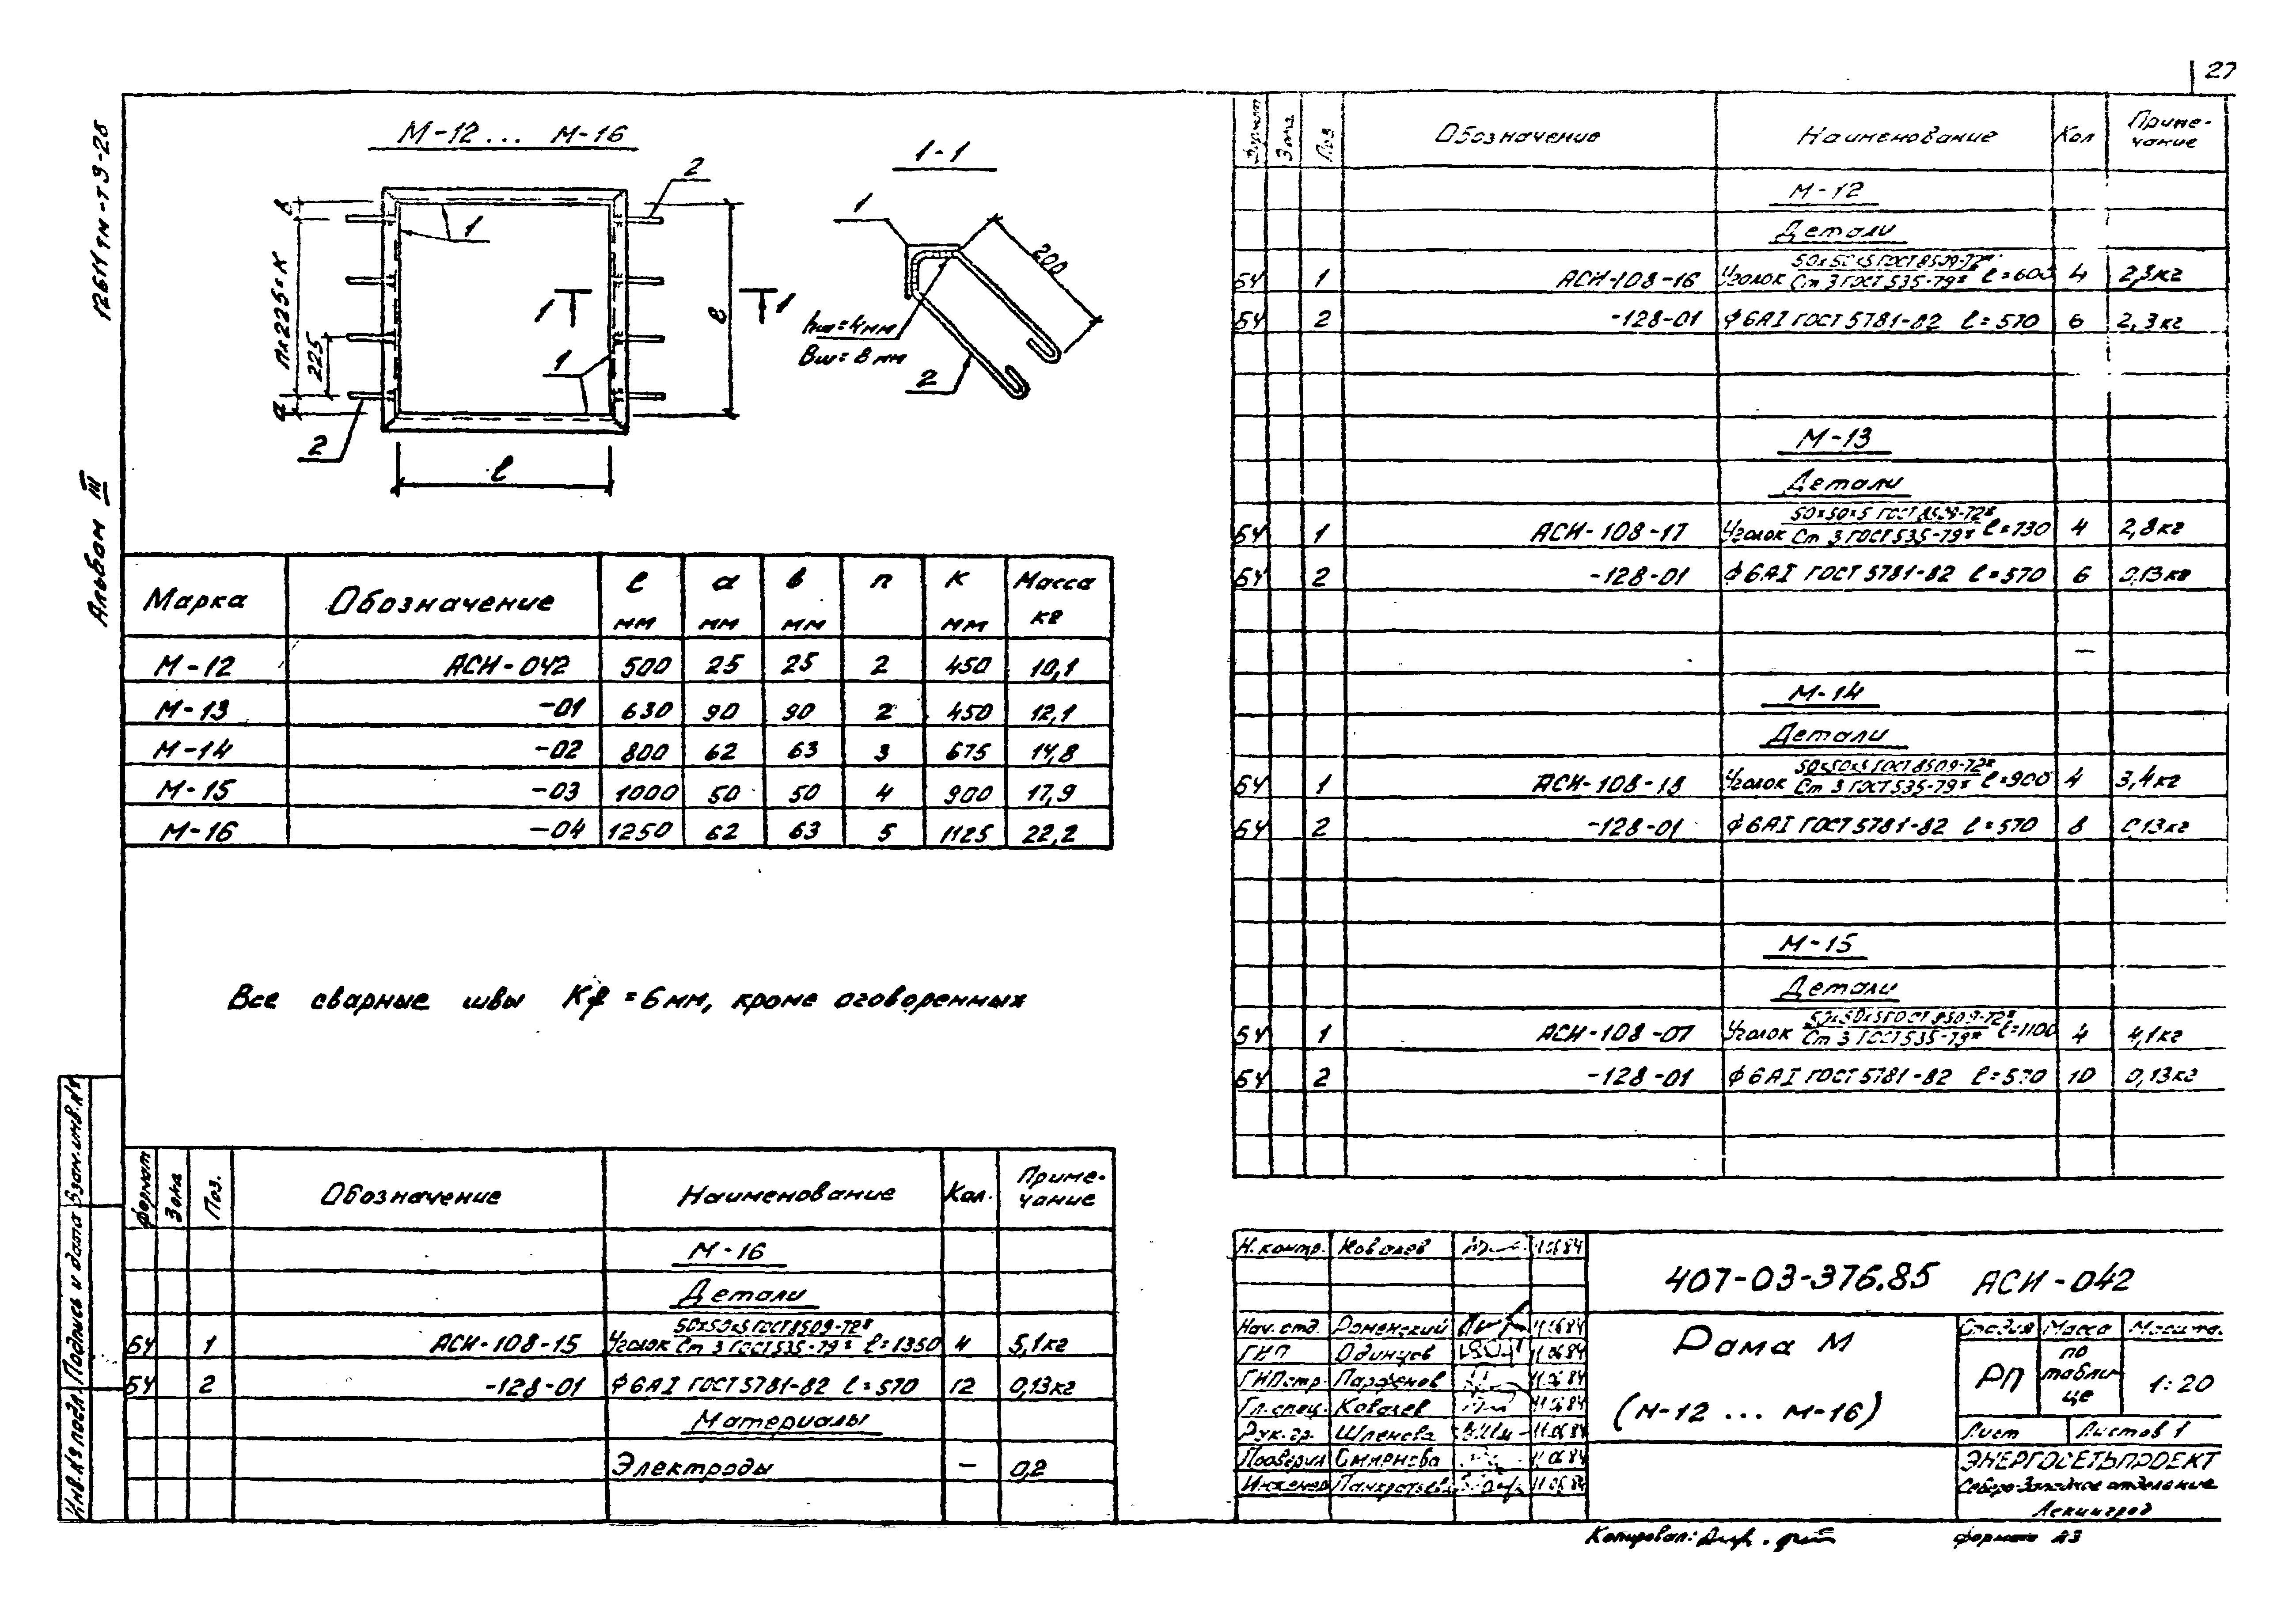 27
12611тм-т3-28
Альбом III
М-12... М-16
1-1
2
1
в
Пх225=К
225
а
2
1
1
1
в
ℓ
1
200
hш=4мм
Вш=8мм
2
Марка Обозначение ℓ мм а мм в мм п К мм Масса кг
М-12 АСИ-042 500 25 25 2 450 10,1
М-13 -01 630 90 90 2 450 12,1
М-14 -02 800 62 63 3 675 14,8
М-15 -03 1000 50 50 4 900 17,9
М-16 -04 1250 62 63 5 1125 22,2
Все сварные швы Кf=6мм, кроме оговоренных
Формат Зона Поз. Обозначение Наименование Кол. Приме-
чание
М-16
Детали
БЧ 1 АСИ-108-15 Уголок 50х50х5 ГОСТ8509-72* / Ст 3 ГОСТ535-79* ℓ=1350 4 5,1кг
БЧ 2 -128-01 ф6АI ГОСТ5781-82 ℓ=570 12 0,13кг
Материалы
Электроды — 0,2
Формат Зона Поз Обозначение Наименование Кол Приме-
чание
М-12
Детали
БЧ 1 АСИ-108-16 Уголок 50х50х5 ГОСТ8509-72* / Ст 3 ГОСТ535-79* ℓ=600 4 2,3кг
БЧ 2 -128-01 ф6АI ГОСТ5781-82 ℓ=570 6 2,3кг
М-13
Детали
БЧ 1 АСИ-108-17 Уголок 50х50х5 ГОСТ8509-72* / Ст 3 ГОСТ535-79* ℓ=730 4 2,8кг
БЧ 2 -128-01 ф6АI ГОСТ5781-82 ℓ=570 6 0,13кг
—
М-14
Детали
БЧ 1 АСИ-108-18 Уголок 50х50х5 ГОСТ8509-72* / Ст 3 ГОСТ535-79* ℓ=900 4 3,4кг
БЧ 2 -128-01 ф6АI ГОСТ5781-82 ℓ=570 8 0,13кг
М-15
Детали
БЧ 1 АСИ-108-07 Уголок 50х50х5 ГОСТ8509-72* / Ст 3 ГОСТ535-79* ℓ=1100 4 4,1кг
БЧ 2 -128-01 ф6АI ГОСТ5781-82 ℓ=570 10 0,13кг
Инв.№ подл. Подпись и дата Взам.инв.№
Н.контр. Ковалев 11.06.84
Нач.отд. Роменский 11.06.84
ГИП Одинцов 11.06.84
ГИПстр. Парфенов 11.06.84
Гл.спец. Ковалев 11.06.84
Рук.гр. Шленова 11.06.84
Проверил Смирнова 11.06.84
Инженер Панкратьева 11.06.84
407-03-376.85 АСИ-042
Рама М
(М-12 ... М-16)
Стадия Масса Масштаб.
РП по табли-
це 1:20
Лист Листов 1
ЭНЕРГОСЕТЬПРОЕКТ
Северо-Западное отделение
Ленинград
Копировал:
формат А3